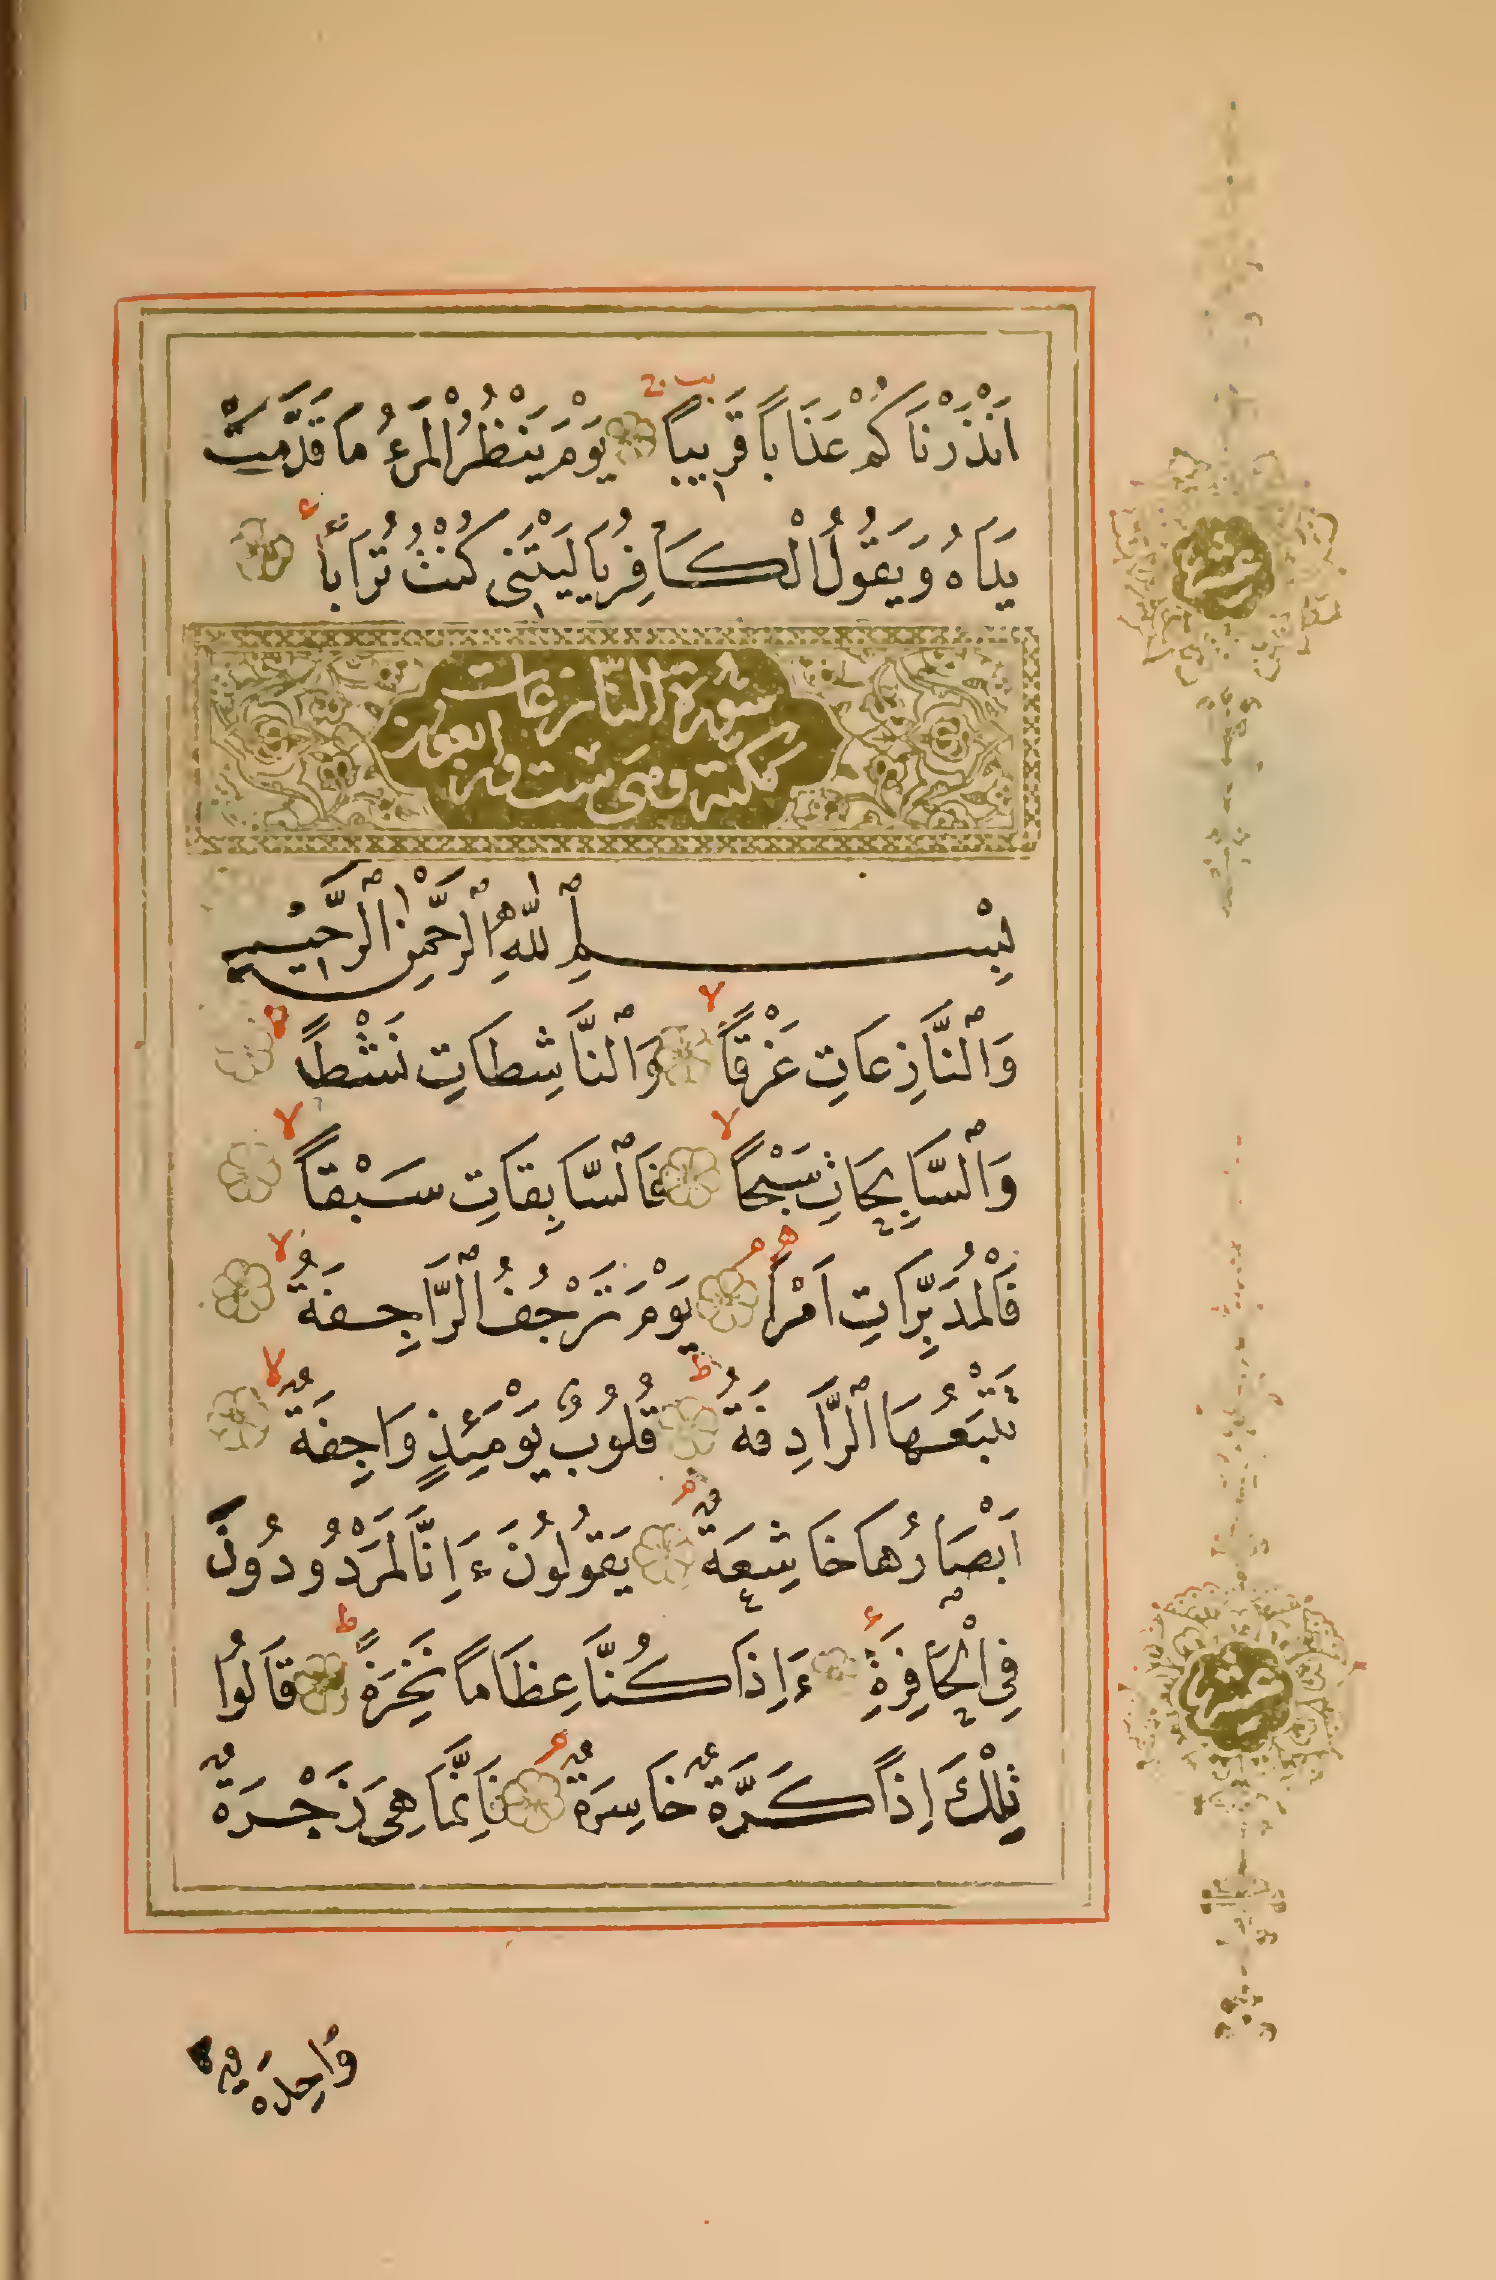 اَنْذَرْنَاكُمْ عَذَابًا قَرِيبًا يَوْمَ يَنْظُرُ الْمَرْءُ مَا قَدَّمَتْ
يَدَاهُ وَيَقُولُ الْكَافِرُ يَا لَيْتَنِى كُنْتُ تُرَابًا
سورة النازعات
مكية وهى ست واربعون
بِسْمِ اللّٰهِ الرَّحْمٰنِ الرَّحِيمِ
وَالنَّازِعَاتِ غَرْقًا وَالنَّاشِطَاتِ نَشْطًا
وَالسَّابِحَاتِ سَبْحًا فَالسَّابِقَاتِ سَبْقًا
فَالْمُدَبِّرَاتِ اَمْرًا يَوْمَ تَرْجُفُ الرَّاجِفَةُ
تَتْبَعُهَا الرَّادِفَةُ قُلُوبٌ يَوْمَئِذٍ وَاجِفَةٌ
اَبْصَارُهَا خَاشِعَةٌ يَقُولُونَ ءَاِنَّا لَمَرْدُودُونَ
فِى الْحَافِرَةِ ءَاِذَا كُنَّا عِظَامًا نَخِرَةً قَالُوا
تِلْكَ اِذًا كَرَّةٌ خَاسِرَةٌ فَاِنَّمَا هِىَ زَجْرَةٌ
وَاحِدَةٌ